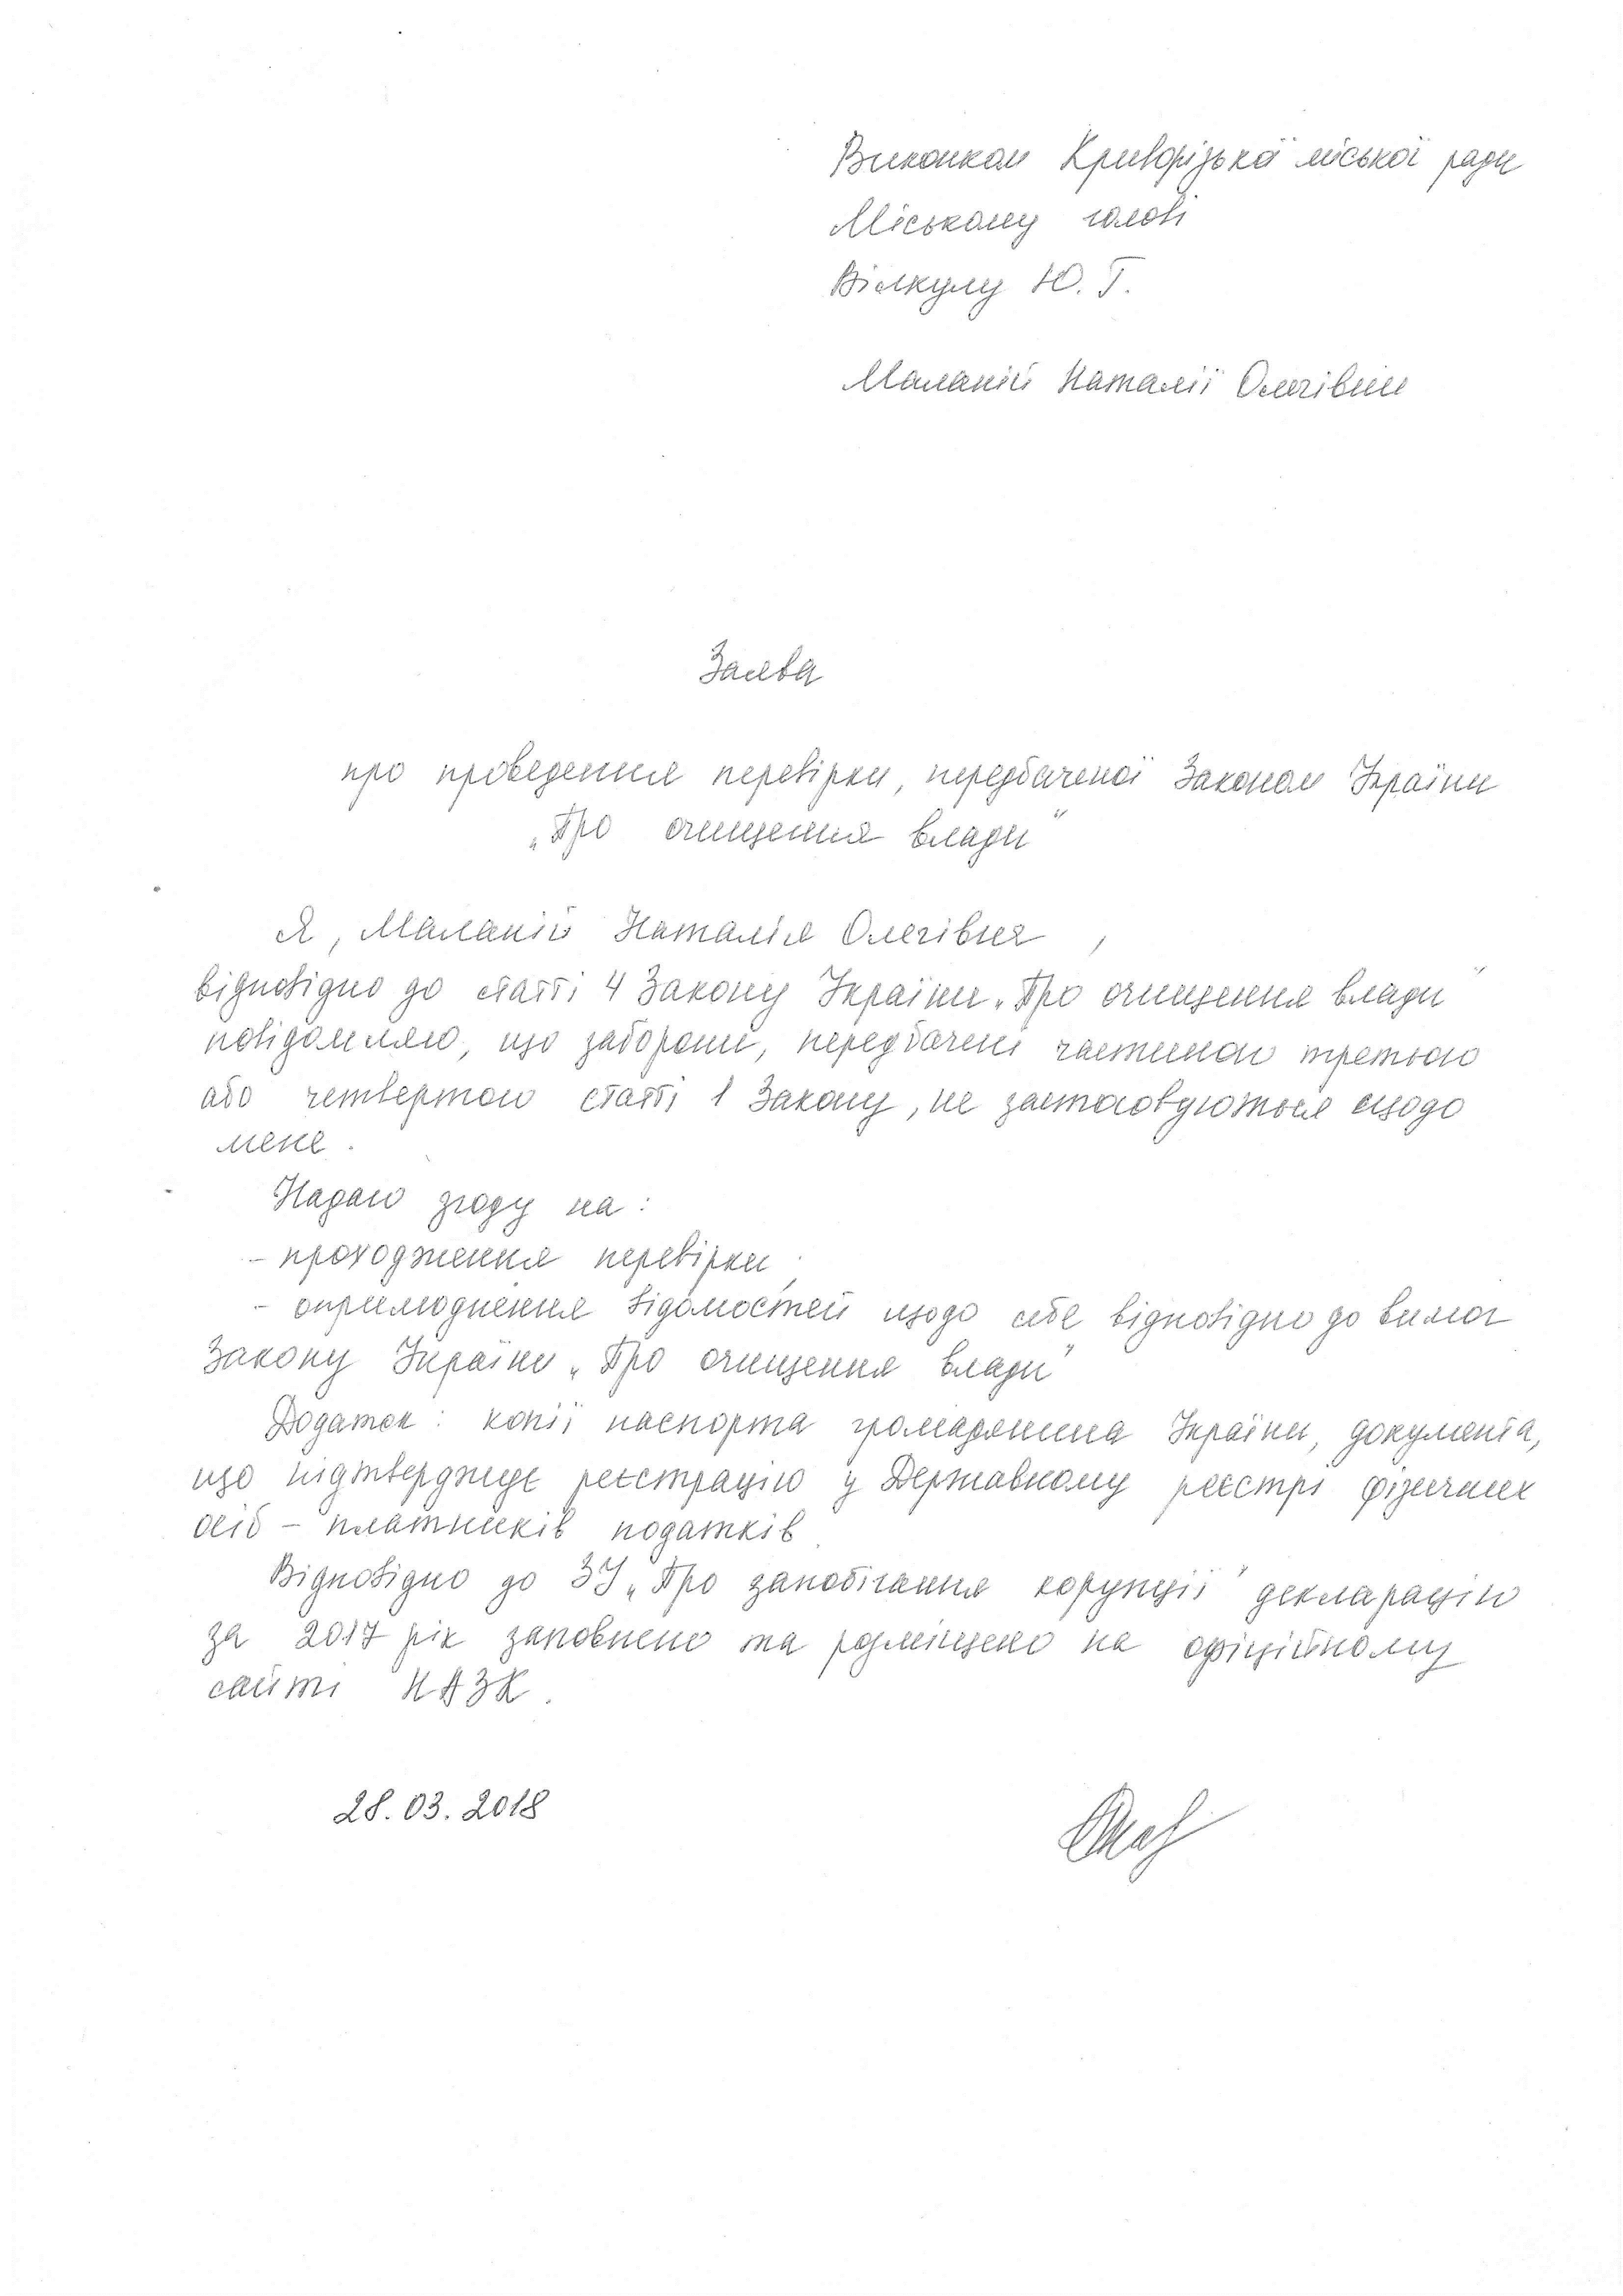 Виконком Криворізької міської ради
Міському голові
Вілкулу Ю. Г.
Маланій Наталії Олегівни
Заява
про проведення перевірки, передбаченої Законом України
„Про очищення влади"
Я, Маланій Наталія Олегівна,
відповідно до статті 4 Закону України „Про очищення влади"
повідомляю, що заборони, передбачені частиною третьою
або четвертою статті 1 Закону, не застосовуються щодо
мене.
Надаю згоду на:
- проходження перевірки;
- оприлюднення відомостей щодо себе відповідно до вимог
Закону України „Про очищення влади"
Додаток: копії паспорта громадянина України, документа,
що підтверджує реєстрацію у Державному реєстрі фізичних
осіб - платників податків.
Відповідно до ЗУ „Про запобігання корупції" декларацію
за 2017 рік заповнено та розміщено на офіційному
сайті НАЗК.
28.03.2018